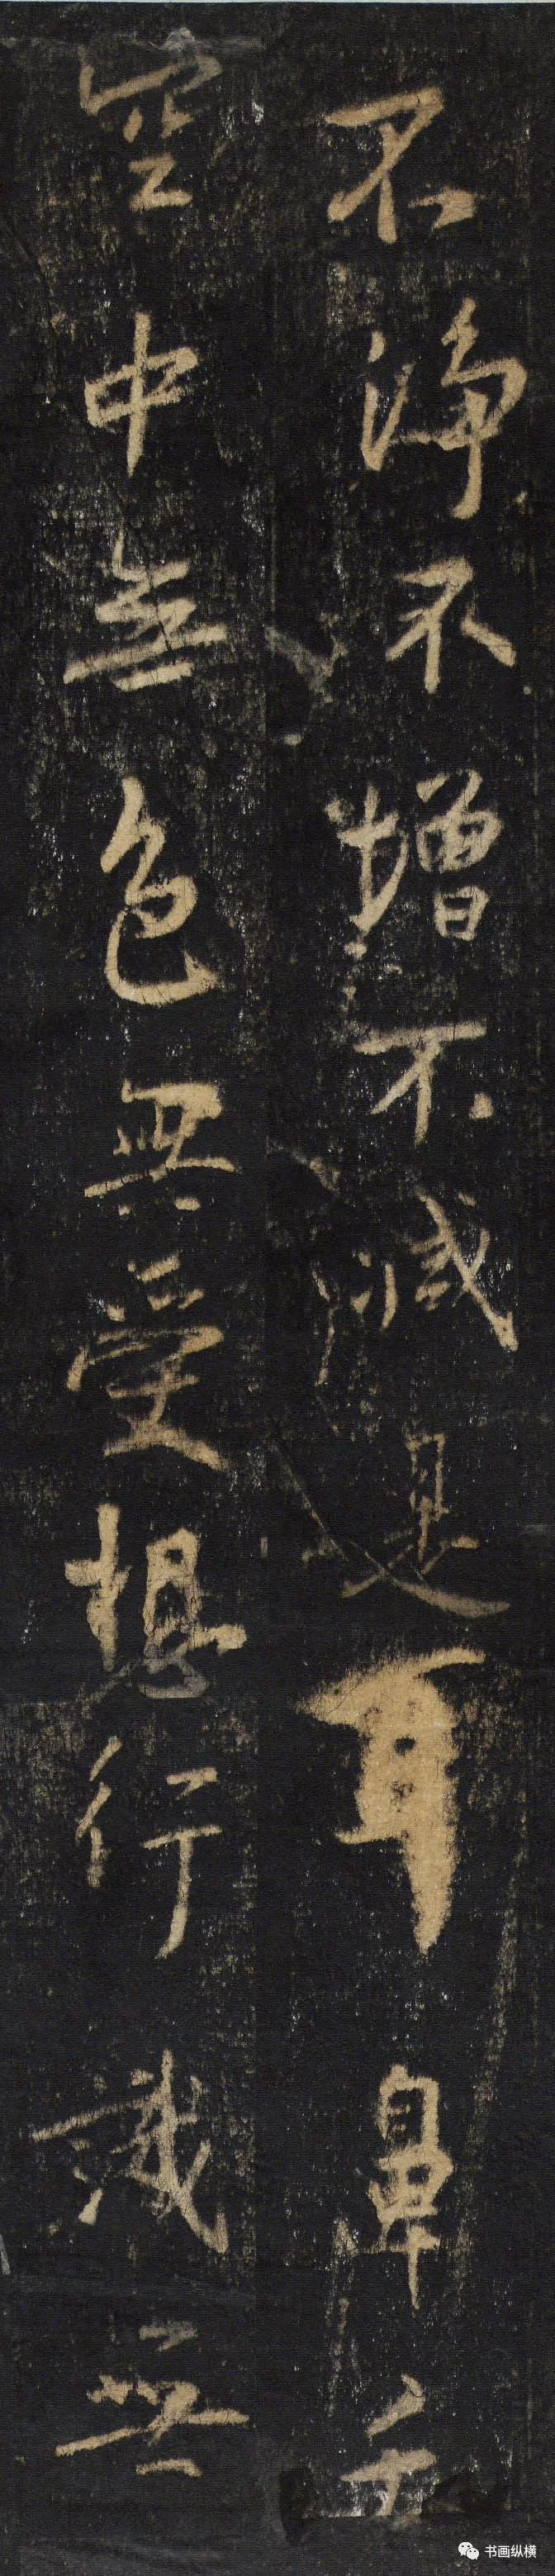 不淨不增不減是耳鼻舌
空中無色無受想行識無
书画纵横